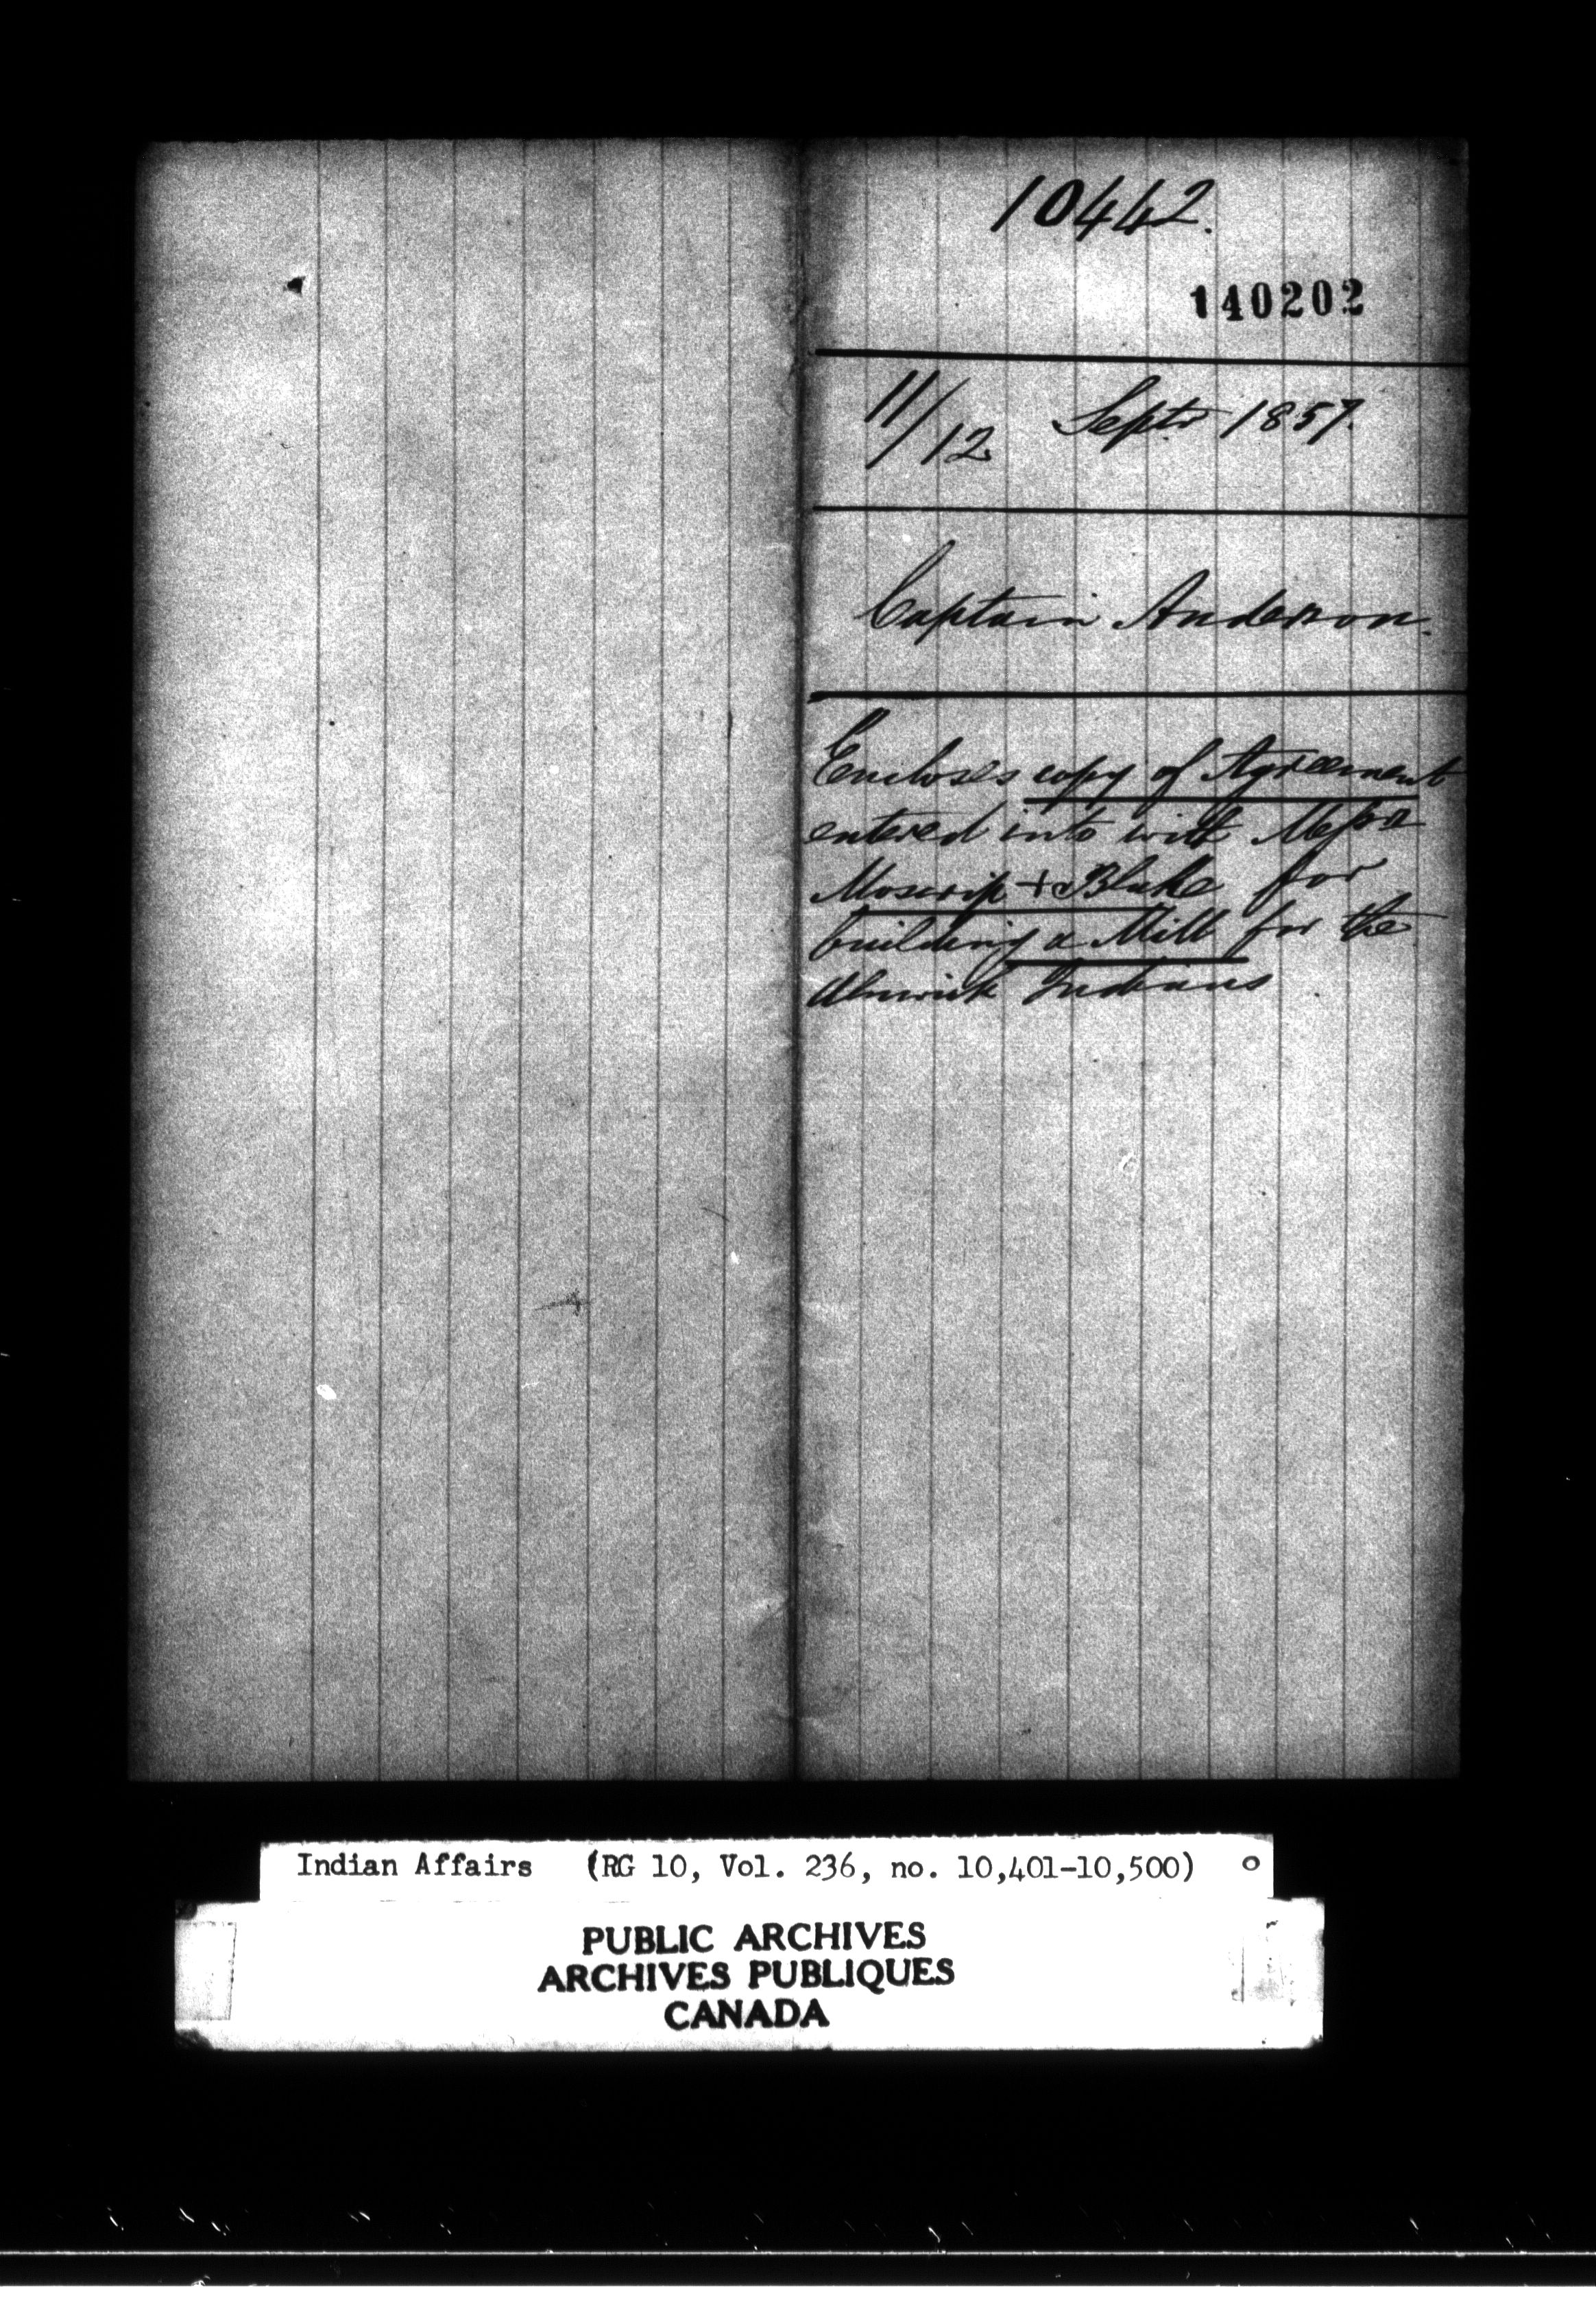 10442.
140202
11/12 Septr 1857.
Captain Anderson.
Encloses copy of Agreement
entered into with Messrs
Moscrip + Blake for
building a Mill for the
Alnwick Indians
Indian Affairs (RG 10, Vol. 236, no. 10,401-10,500)
PUBLIC ARCHIVES
ARCHIVES PUBLIQUES
CANADA